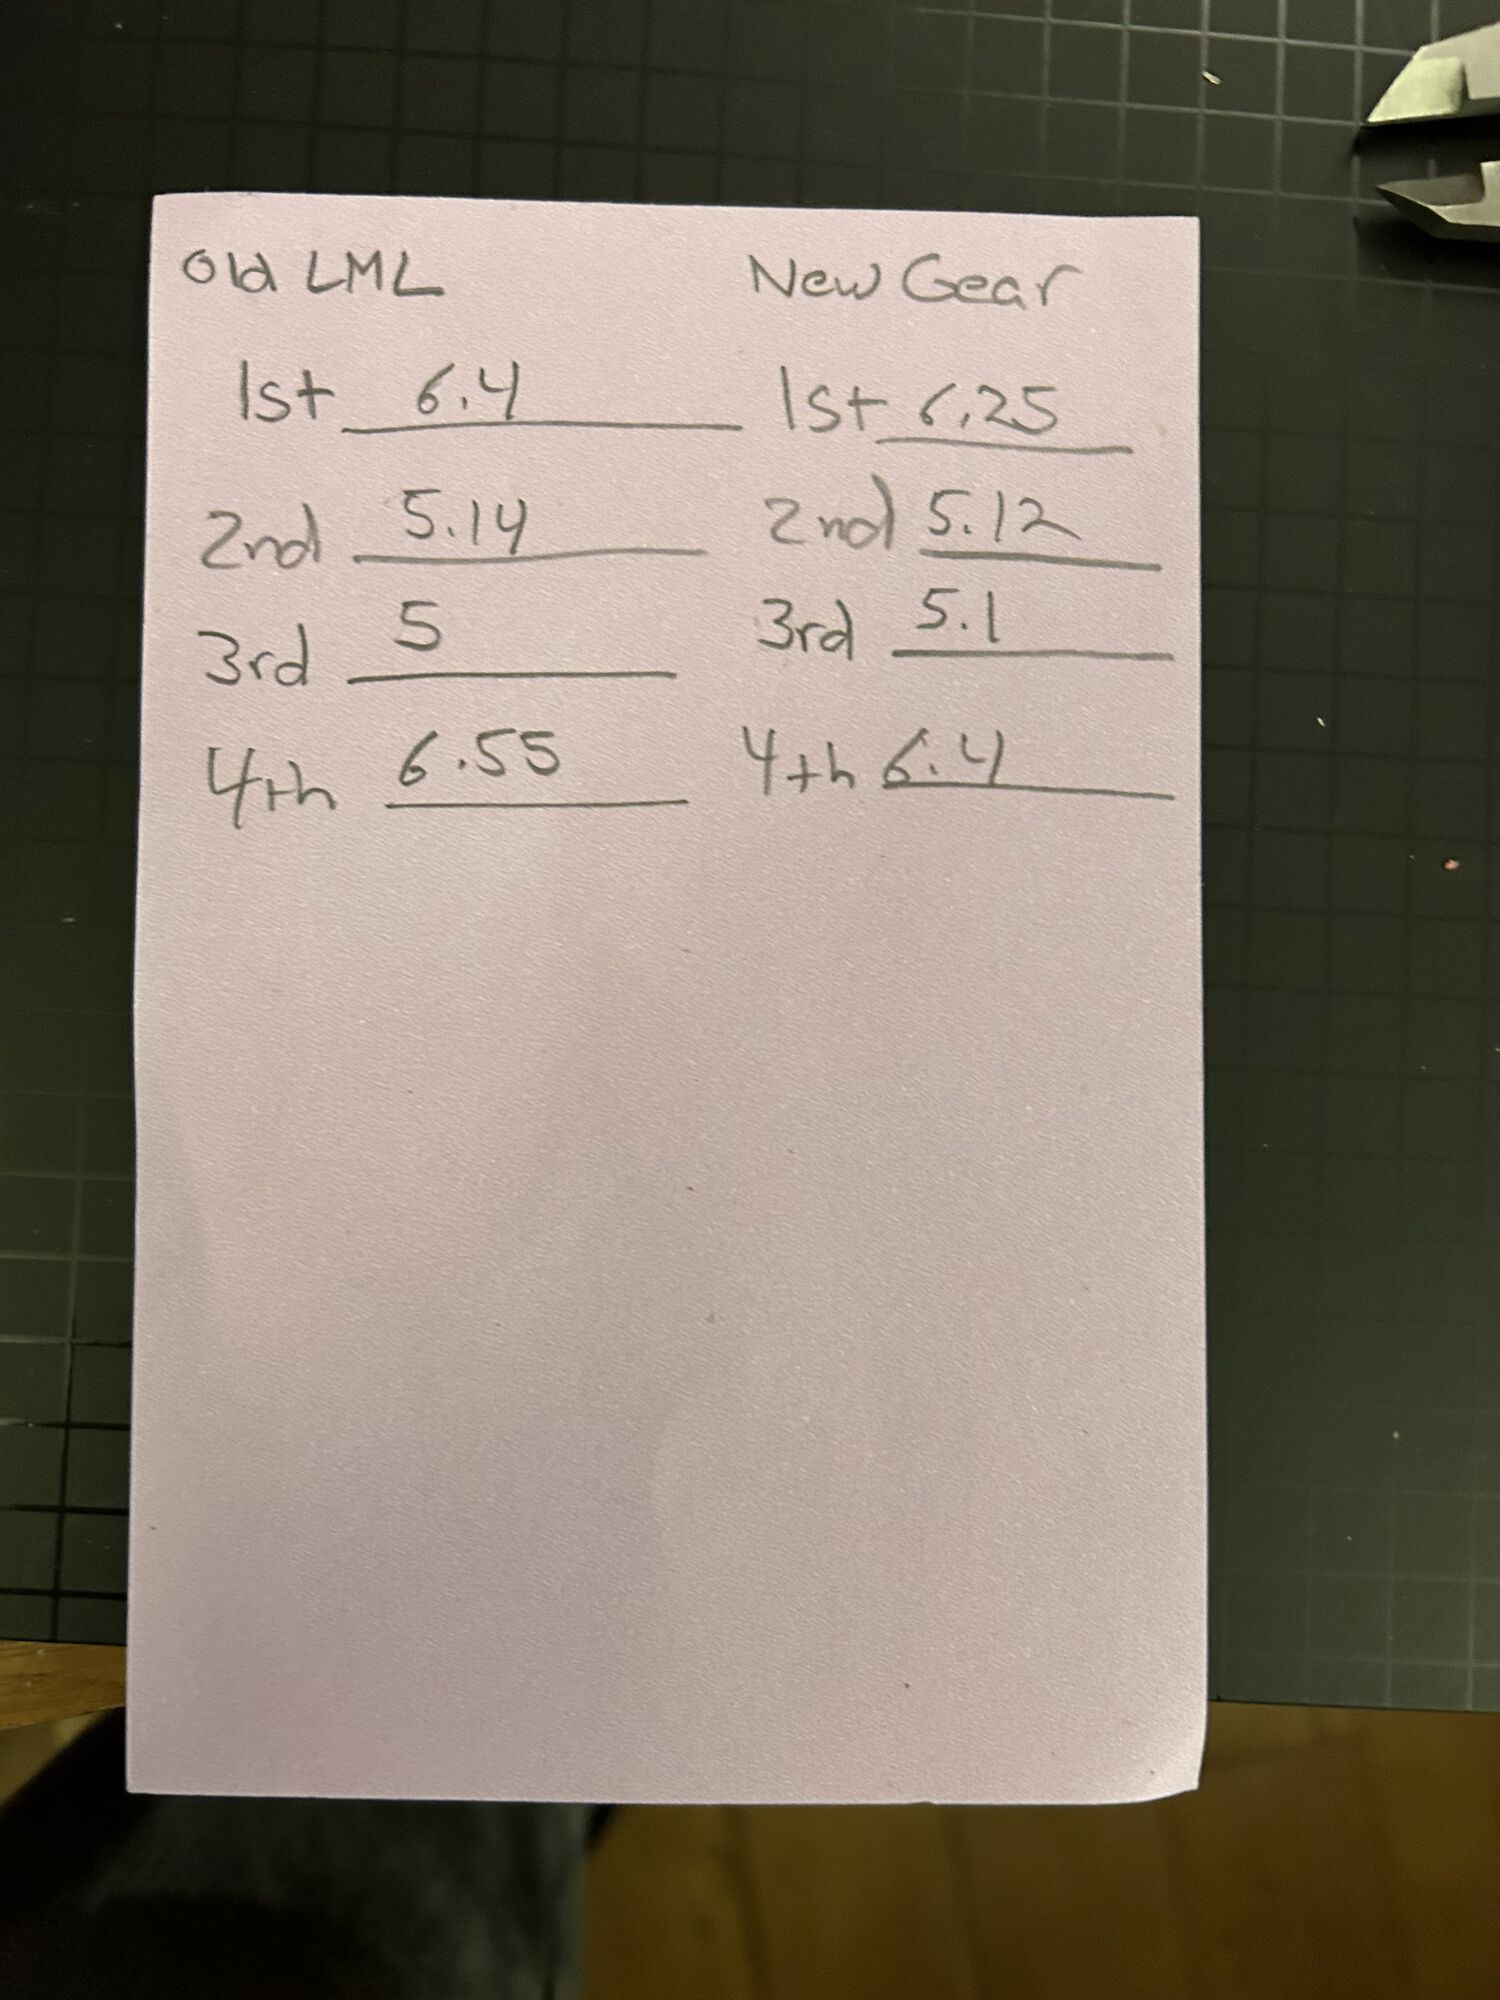 Old LML New Gear
1st 6.4 1st 6.25
2nd 5.14 2nd 5.12
3rd 5 3rd 5.1
4th 6.55 4th 6.4